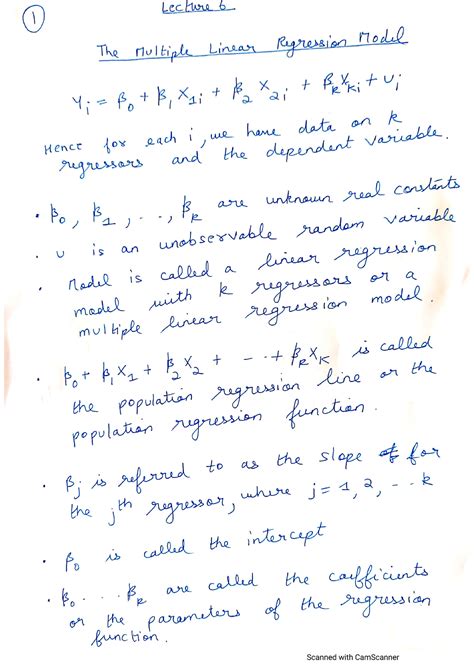 1
Lecture 6
The Multiple Linear Regression Model
Yᵢ = β₀ + β₁ X₁ᵢ + β₂ X₂ᵢ + βₖXₖᵢ + uᵢ
Hence for each i, we have data on k
regressors and the dependent variable.
• β₀, β₁, ..., βₖ are unknown real constants
• u is an unobservable random variable
• Model is called a linear regression
model with k regressors or a
multiple linear regression model.
• β₀ + β₁X₁ + β₂X₂ + - - + βₖXₖ is called
the population regression line or the
population regression function.
• βⱼ is referred to as the slope for
the jth regressor, where j = 1, 2, - - k
• β₀ is called the intercept
• β₀ . . . βₖ are called the coefficients
or the parameters of the regression
function.
Scanned with CamScanner